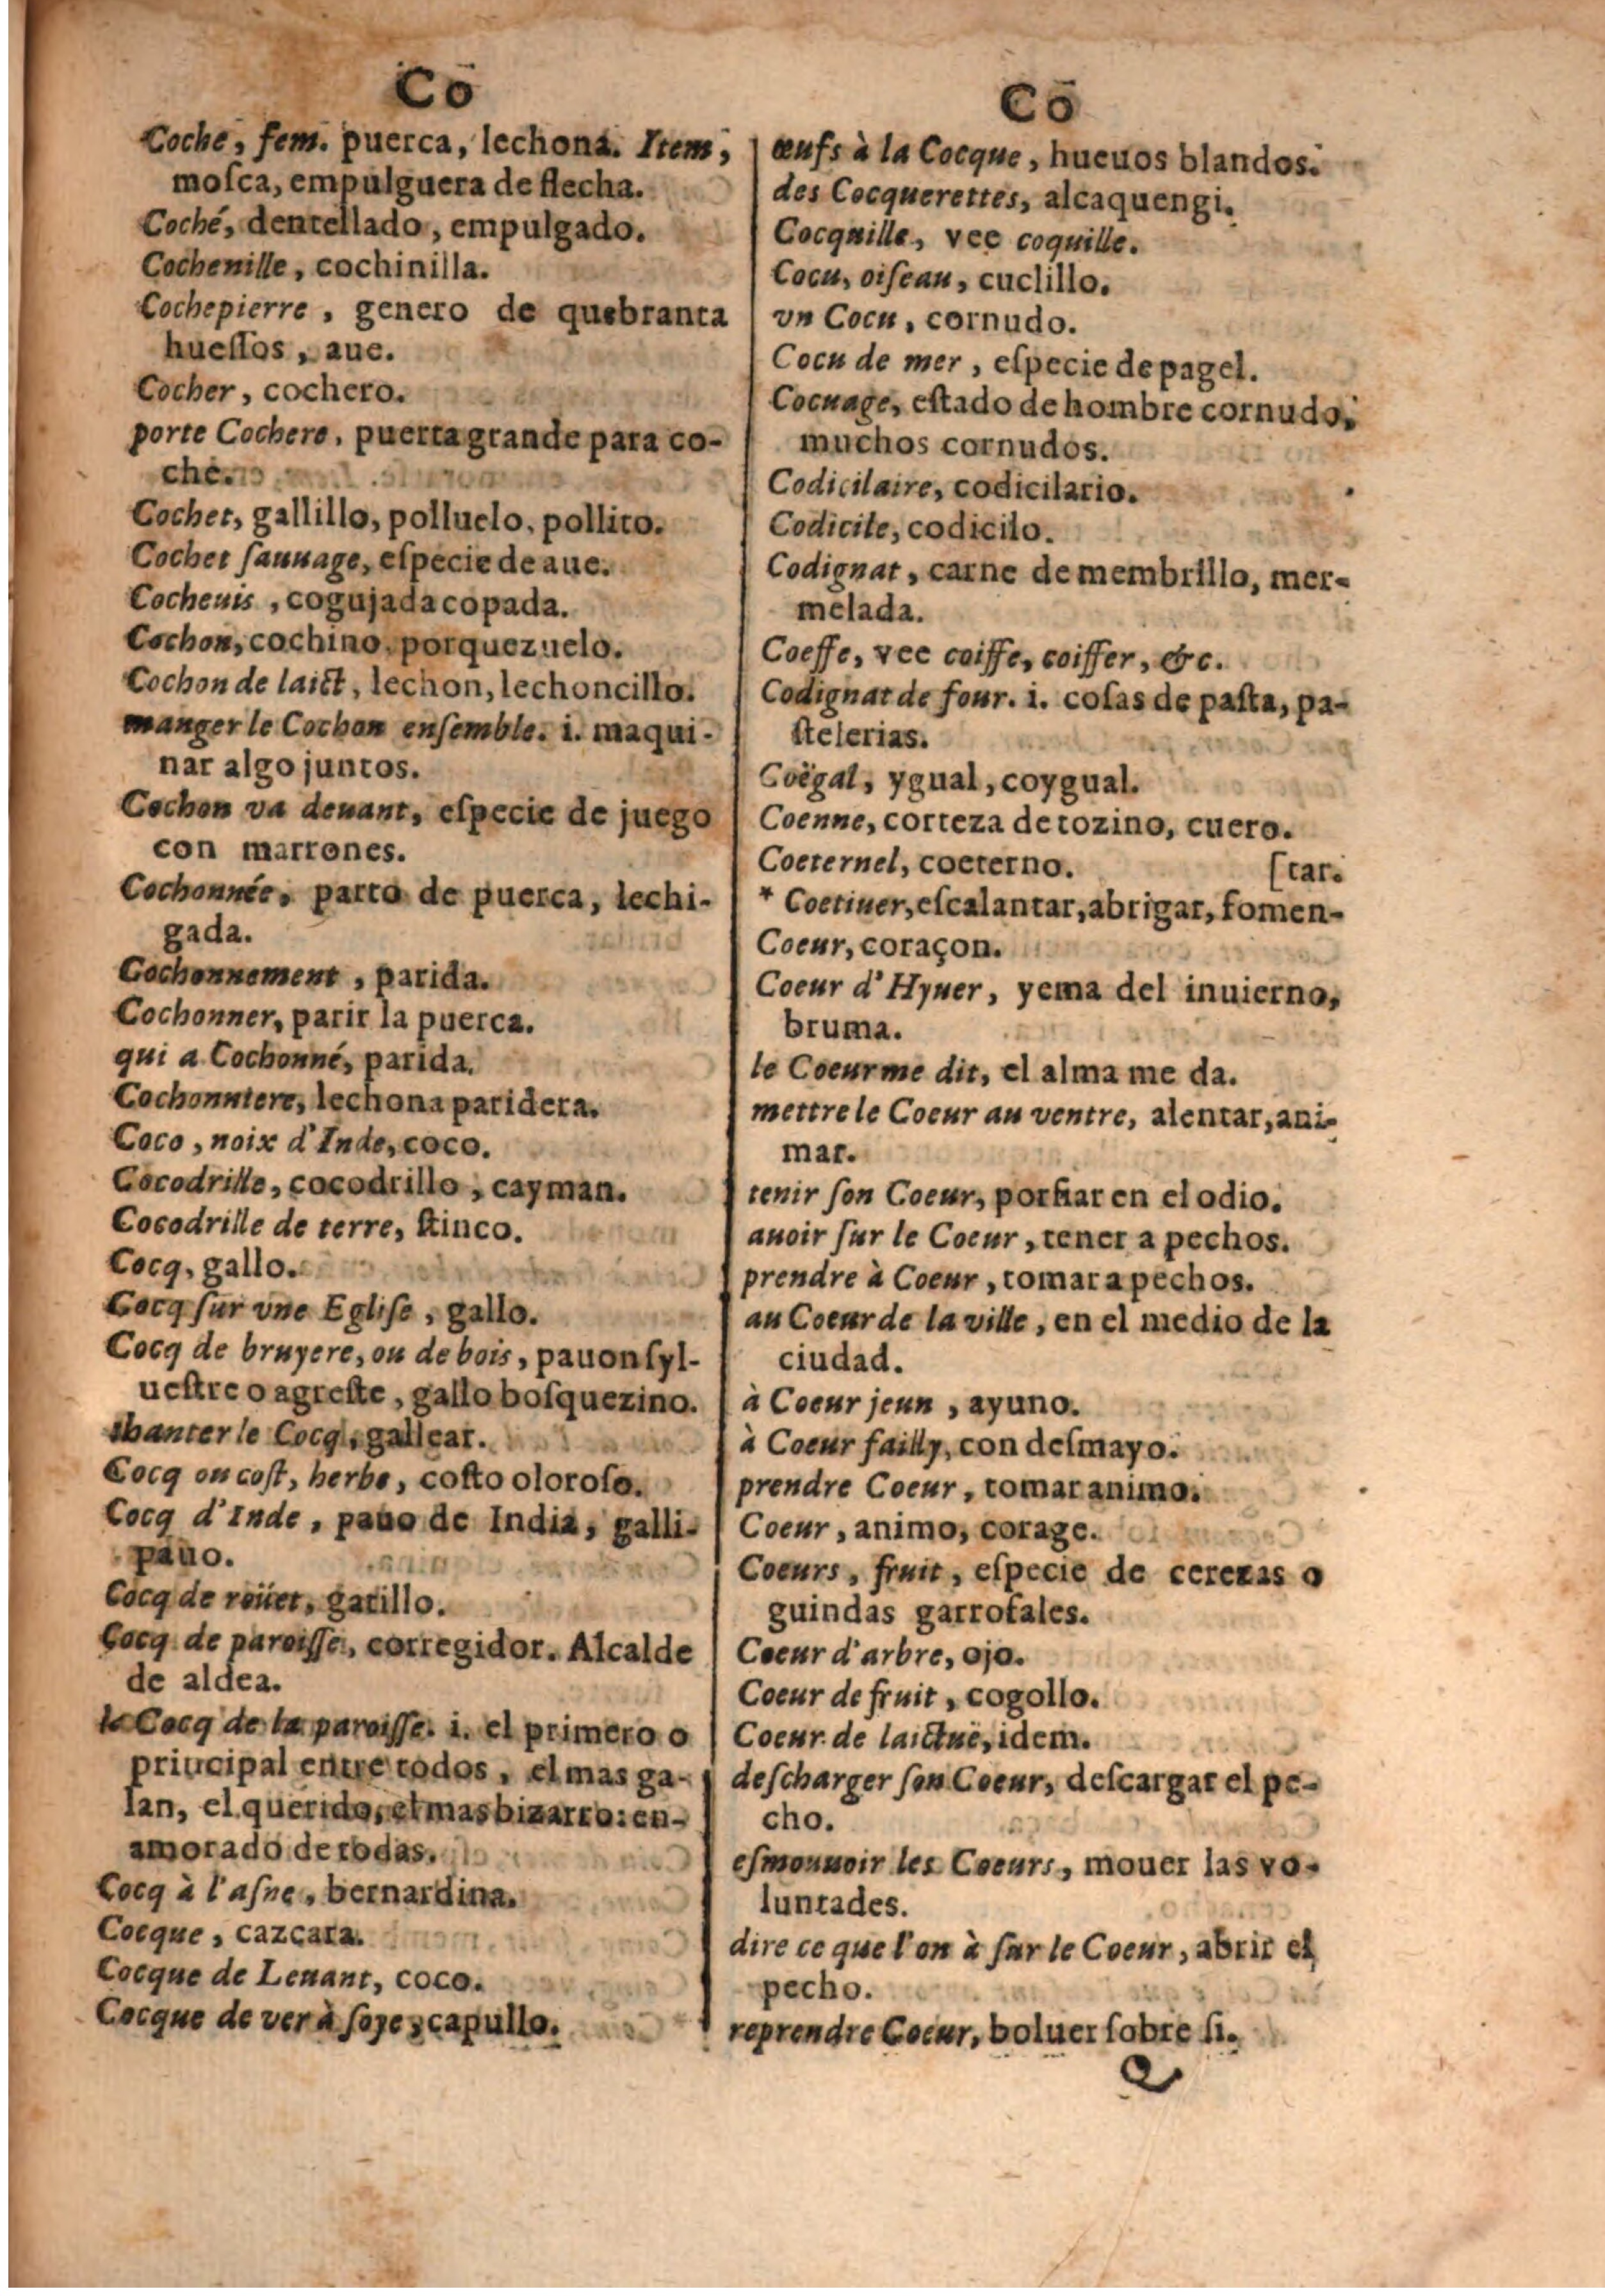 Cō
Coche, fem. puerca, lechona. Item,
moſca, empulguera de flecha.
Coché, dentellado, empulgado.
Cochenille, cochinilla.
Cochepierre, genero de quebranta
hueſſos, aue.
Cocher, cochero.
porte Cochere, puerta grande para co-
che.
Cochet, gallillo, polluelo, pollito.
Cochet ſauuage, eſpecie de aue.
Cocheuis, cogujada copada.
Cochon, cochino, porquezuelo.
Cochon de laict, lechon, lechoncillo.
manger le Cochon enſemble. i. maqui-
nar algo juntos.
Cochon va deuant, eſpecie de juego
con marrones.
Cochonnée, parto de puerca, lechi-
gada.
Cochonnement, parida.
Cochonner, parir la puerca.
qui a Cochonné, parida.
Cochonniere, lechona paridera.
Coco, noix d'Inde, coco.
Cocodrille, cocodrillo, cayman.
Cocodrille de terre, ſtinco.
Cocq, gallo.
Cocq ſur vne Egliſe, gallo.
Cocq de bruyere, ou de bois, pauon ſyl-
ueſtre o agreſte, gallo boſquezino.
chanter le Cocq, gallear.
Cocq ou coſt, herbe, coſto oloroſo.
Cocq d'Inde, pauo de India, galli-
pauo.
Cocq de roüet, gatillo.
Cocq de paroiſſe, corregidor. Alcalde
de aldea.
le Cocq de la paroiſſe. i. el primero o
priucipal entre todos, el mas ga-
lan, el querido, el mas bizarro: en-
amorado de todas.
Cocq à l'aſne, bernardina.
Cocque, cazcara.
Cocque de Leuant, coco.
Cocque de ver à ſoye, capullo.
Cō
œufs à la Cocque, hueuos blandos.
des Cocquerettes, alcaquengi.
Cocquille, vee coquille.
Cocu, oiſeau, cuclillo.
vn Cocu, cornudo.
Cocu de mer, eſpecie de pagel.
Cocuage, eſtado de hombre cornudo,
muchos cornudos.
Codicilaire, codicilario.
Codicile, codicilo.
Codignat, carne de membrillo, mer-
melada.
Coeffe, vee coiffe, coiffer, &c.
Codignat de four. i. coſas de paſta, pa-
ſtelerias.
Coëgal, ygual, coygual.
Coenne, corteza de tozino, cuero.
Coeternel, coeterno. [tar.
* Coetiuer, eſcalantar, abrigar, fomen-
Coeur, coraçon.
Coeur d'Hyuer, yema del inuierno,
bruma.
le Coeur me dit, el alma me da.
mettre le Coeur au ventre, alentar, ani-
mar.
tenir ſon Coeur, porfiar en el odio.
auoir ſur le Coeur, tener a pechos.
prendre à Coeur, tomar a pechos.
au Coeur de la ville, en el medio de la
ciudad.
à Coeur jeun, ayuno.
à Coeur failly, con deſmayo.
prendre Coeur, tomar animo.
Coeur, animo, corage.
Coeurs, fruit, eſpecie de cerezas o
guindas garrofales.
Coeur d'arbre, ojo.
Coeur de fruit, cogollo.
Coeur de laictuë, idem.
deſcharger ſon Coeur, deſcargar el pe-
cho.
eſmouuoir les Coeurs, mouer las vo-
luntades.
dire ce que l'on à ſur le Coeur, abrir el
pecho.
reprendre Coeur, boluer ſobre ſi.
Q